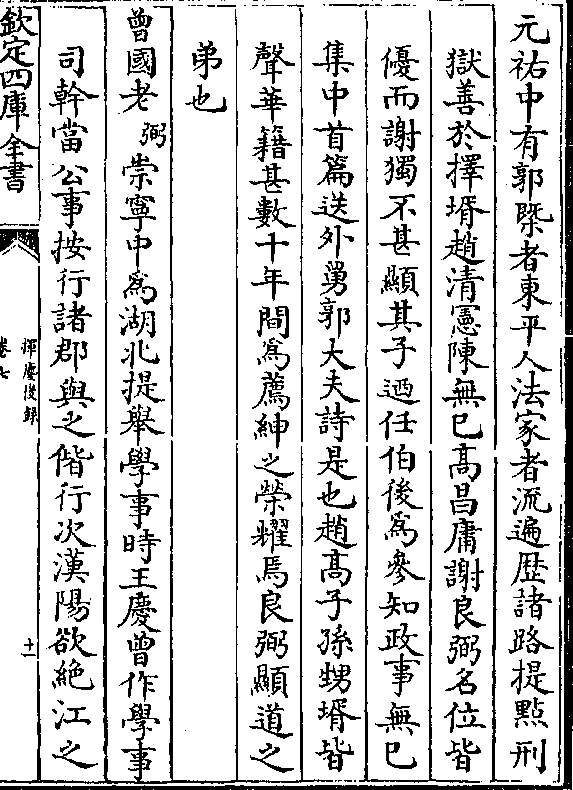 元祐中有郭槩者東平人法家者流遍歴諸路提㸃刑
獄善於擇壻趙清憲陳無已髙昌庸謝良弼名位皆
優而謝獨不甚顯其子廼任伯後爲參知政事無已
集中首篇送外舅郭大夫詩是也趙髙子孫甥壻皆
聲華籍甚數十年間爲薦紳之榮耀焉良弼顯道之
弟也
曾國老弼崇寧中爲湖北提舉學事時王慶曾作學事
司幹當公事按行諸郡與之偕行次漢陽欲絶江之
欽定四庫全書
揮麈後録
卷七
十一